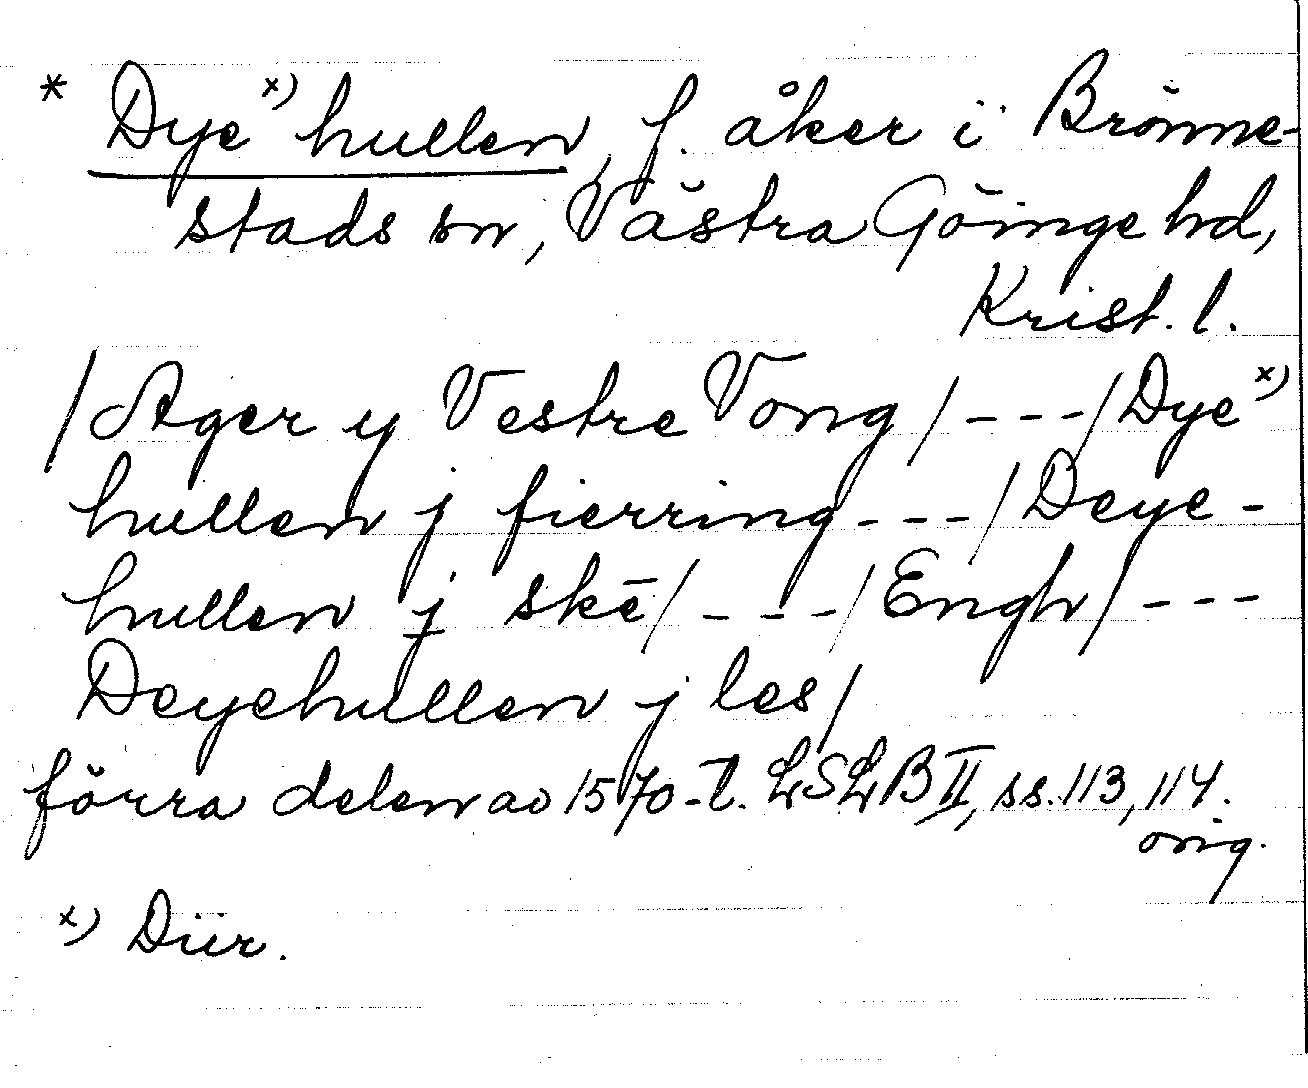 * Dye x) hullen, f. åker i Brönne-
stads sn, Västra Göinge hd,
Krist. l.
/Ager y Vestre Vong/---/Dye x)
hullen j fierring---/Deye-
hullen j skē/---/Engh/---
Deyehullen j les/
förra delen av 1570-t. LSLB II, ss. 113, 114.
orig.
x) Diir.